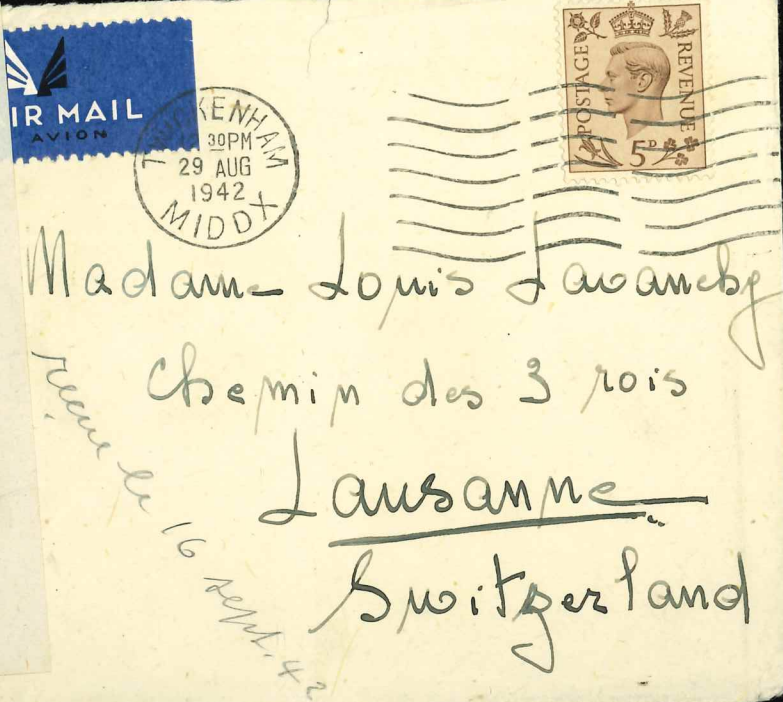 AIR MAIL
AVION
TWICKENHAM
30PM
29 AUG
1942
MIDDX
POSTAGE
REVENUE
5D
Madame Louis Lavanchy
Chemin des 3 rois
Lausanne
Switzerland
reçue le 16 sept. 42